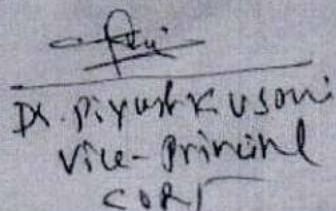 Dr. Piyush K u soni
Vice-Principal
CORT